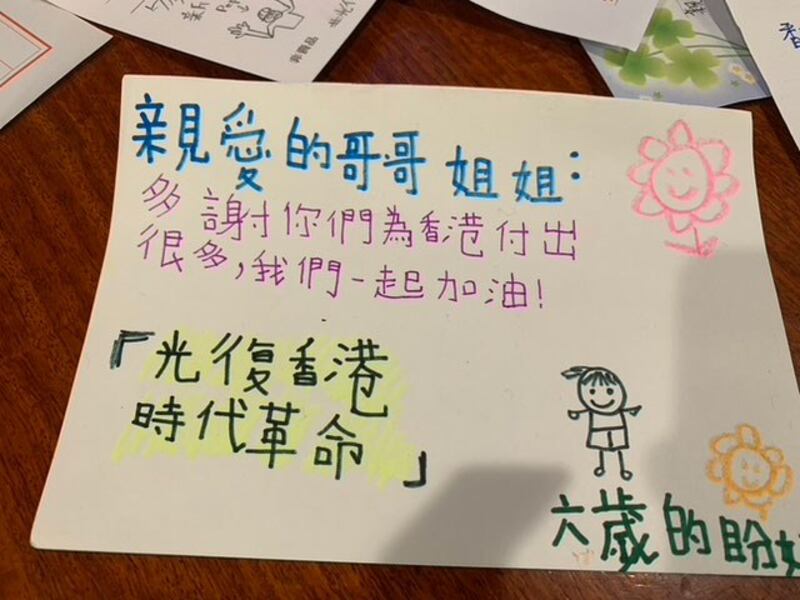 非賣品
親愛的哥哥姐姐：
多謝你們為香港付出
很多，我們一起加油！
「光復香港
時代革命」
六歲的盼